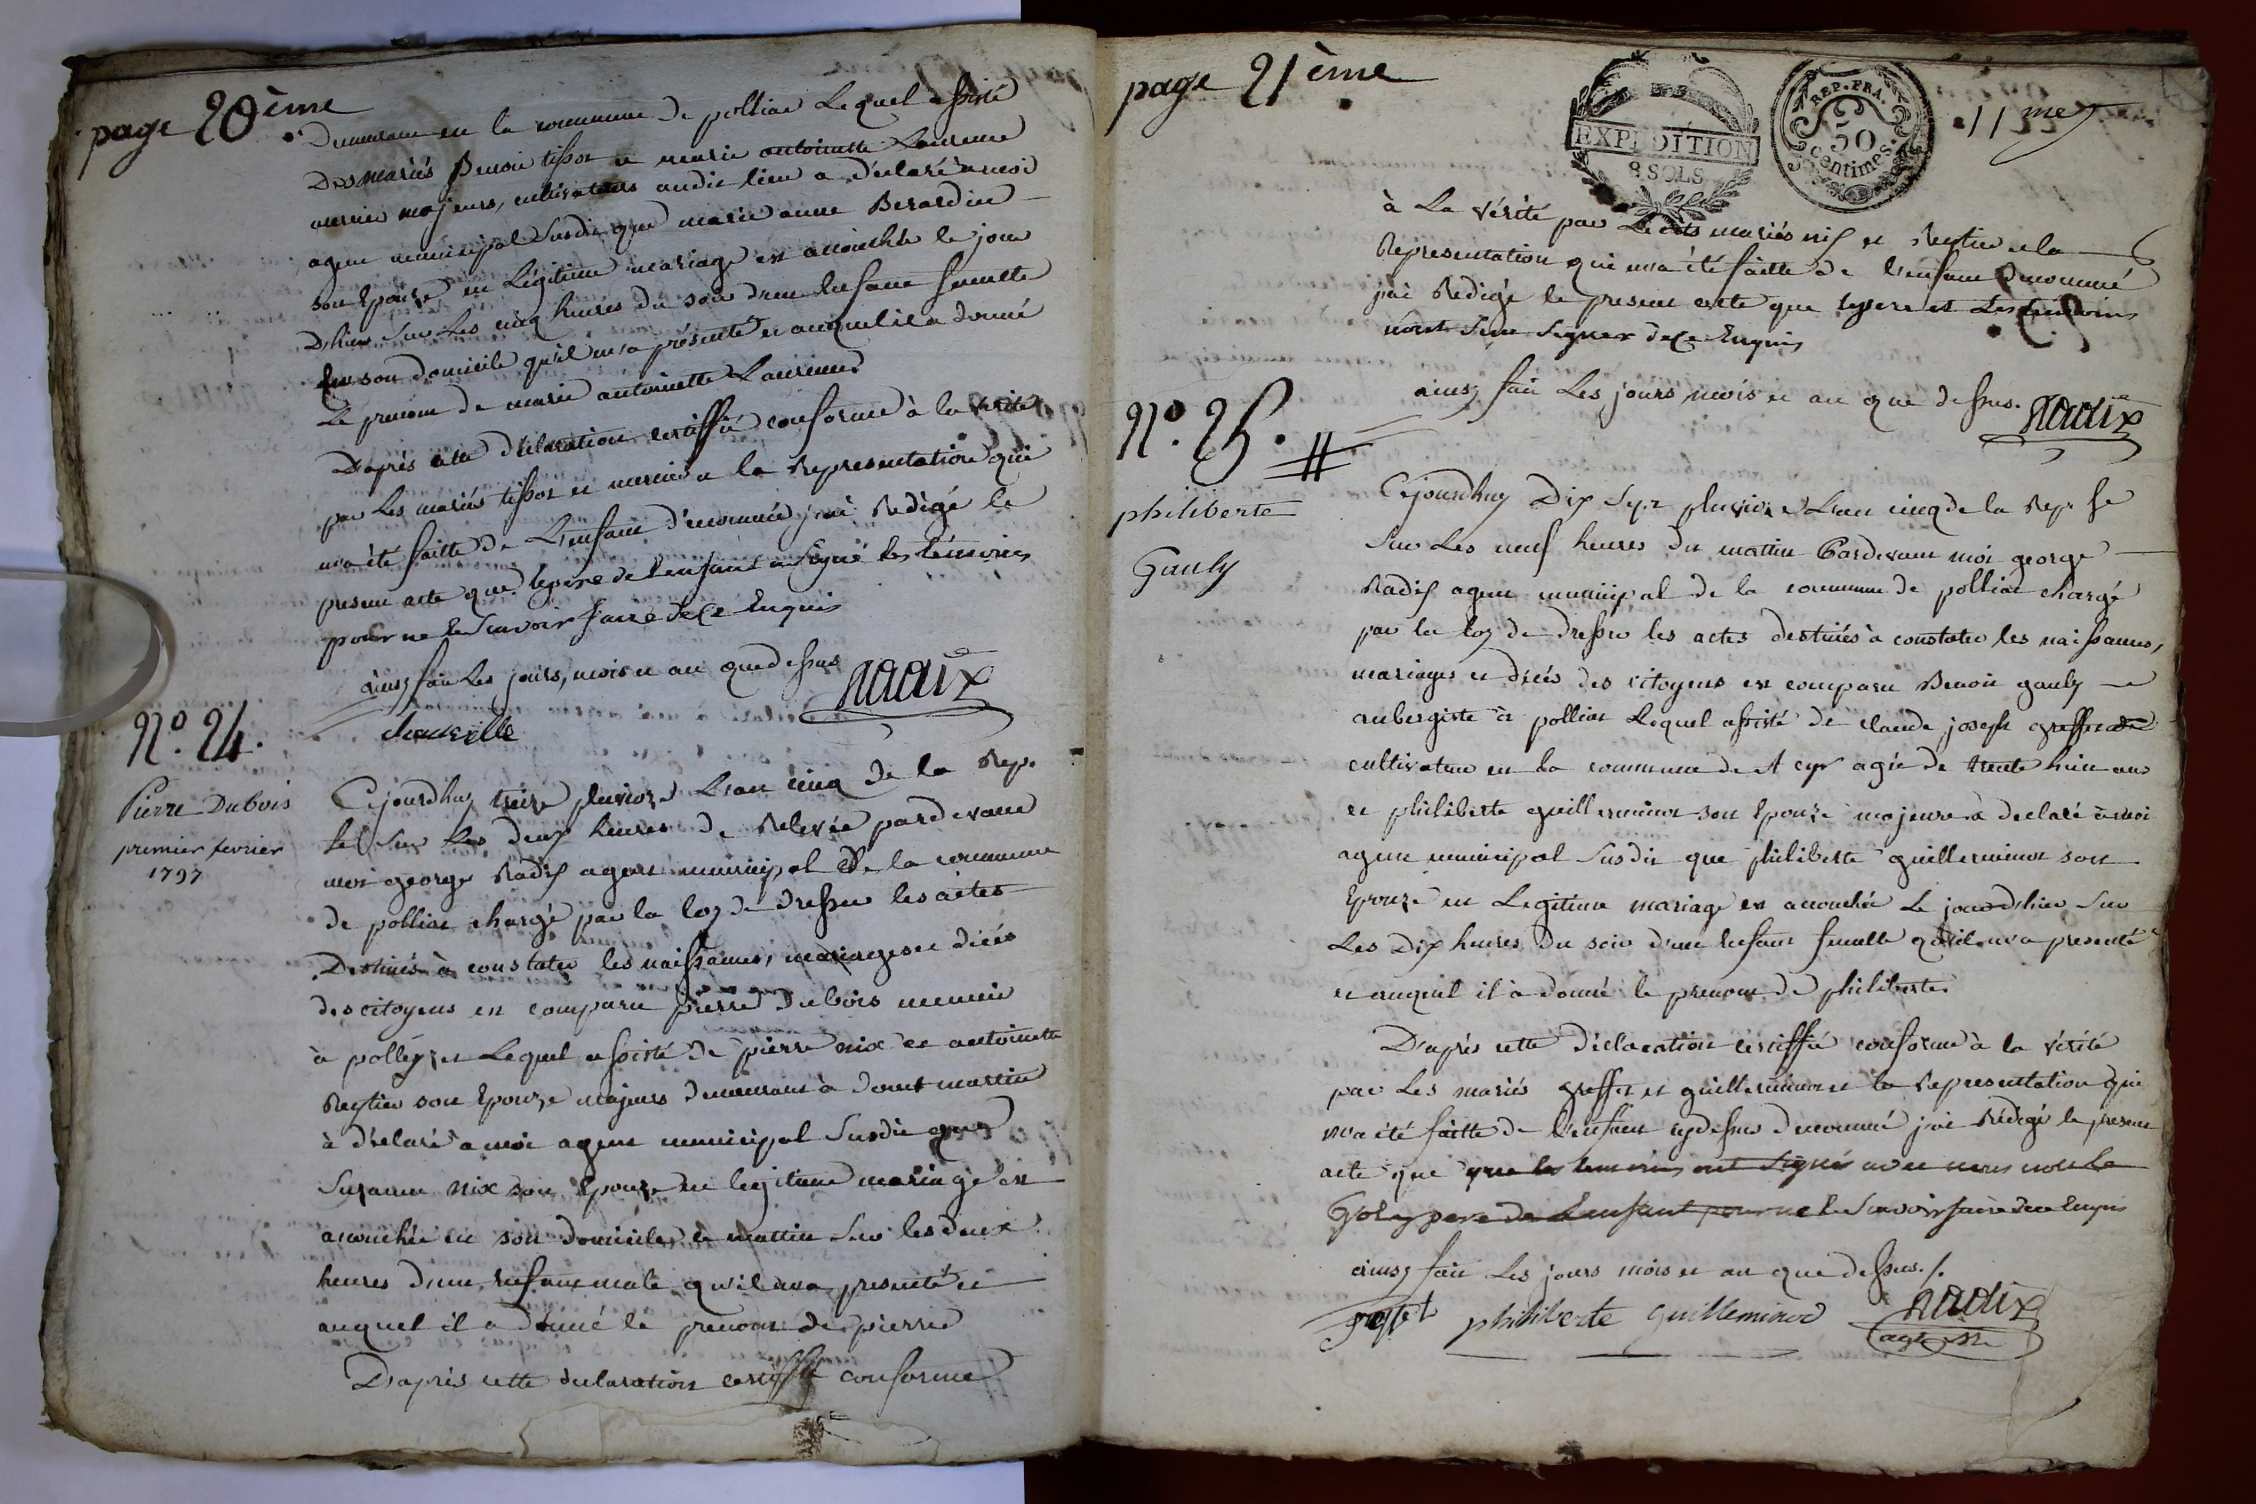 page 20ème
Demeurant en la commune de polliat Lequel assisté
Des mariés Benoit tissot et marie antoinette Laurence
mercier majeurs, cultivateurs audit lieu a déclaré a moi
agent municipal Susdit que marie anne Berardin
son Epouze en Legitime mariage est accouchée le jour
D'hier Sur Les cinq heures du soir d'un Enfant femelle
En son domicile qu'il m'a présenté et auquel il a donné
Le prenom de marie antoinette Laurence
D'après cette déclaration certiffié conforme à la vérité
par Les mariés tissot et mercier et la Representation qui
m'a été faitte de L'enfant dénommé j'ai Redigé le
present acte que le pere de l'enfant a Signé les témoins
pour ne le Scavoir faire de ce Enquis
ainsy fait Les jours, mois et an que dessus
Nadix
N.º 24.
Pierre Dubois
premier fevrier
1797
Cejourdhuy treize pluvioze L'an cinq de la Rep.
fse Sur Les deux heures de Relevée pardevant
moi george Radix agent municipal de la commune
de polliat chargé par la loy de dresser les actes
Destinés à constater les naissances, mariages et décés
des citoyens est comparu pierre dubois meunier
à polleyzet Lequel assisté de pierre nix et antoinette
Reytier son Epouze majeurs demeurant à domt martin
à déclaré a moi agent municipal Susdit que
Suzanne nix son Epouze en legitime mariage est
accouchée en son domicile ce mattin Sur les deux
heures d'un Enfant male qu'il m'a presenté et
auquel il a donné le prenom de pierre
D'après cette declaration certiffié conforme
page 21ème
EXPEDITION
8 SOLS
REP. FRA.
50
centimes.
11 me
à La vérité par Les dits mariés nix et Reytier et la
Representation qui m'a été faitte de L'enfant Denommé
j'ai Redigé le present acte que le pere et Les témoins
n'ont Sceu Signer de ce Enquis
ainsy fait Les jours, mois et an que dessus.
Nadix
N.º 25.
philiberte
Gauly
Cejourdhuy Dix Sept pluvioze L'an cinq de la Rep. fse
Sur Les neuf heures du mattin Pardevant moi george
Radix agent municipal de la commune de polliat chargé
par la loy de dresser les actes destinés à constater les naissances,
mariages et décés des citoyens est comparu Benoit gauly
aubergiste à polliat Lequel assisté de claude joseph greffet
cultivateur en la commune de St cyr agé de trente huit ans
et philiberte guilleminot son Epouze majeure à declaré à moi
agent municipal Susdit que philiberte guilleminot son
Epouze en Legitime mariage est accouchée Le jour d'hier Sur
Les Dix heures du soir d'un Enfant femelle qu'il m'a presenté
et auquel il à donné le prenom de philiberte
D'après cette déclaration certiffié conforme à la vérité
par Les mariés greffet et guilleminot et la Representation qui
m'a été faitte de l'enfant cy dessus denommé j'ai Redigé le present
acte que que les temoins ont Signé avec nous non Le
Goly pere de L'enfant pour ne le Scavoir faire de ce Enquis
ainsy fait Les jours mois et an que dessus./.
grefet philiberte guilleminod Nadix
agt m